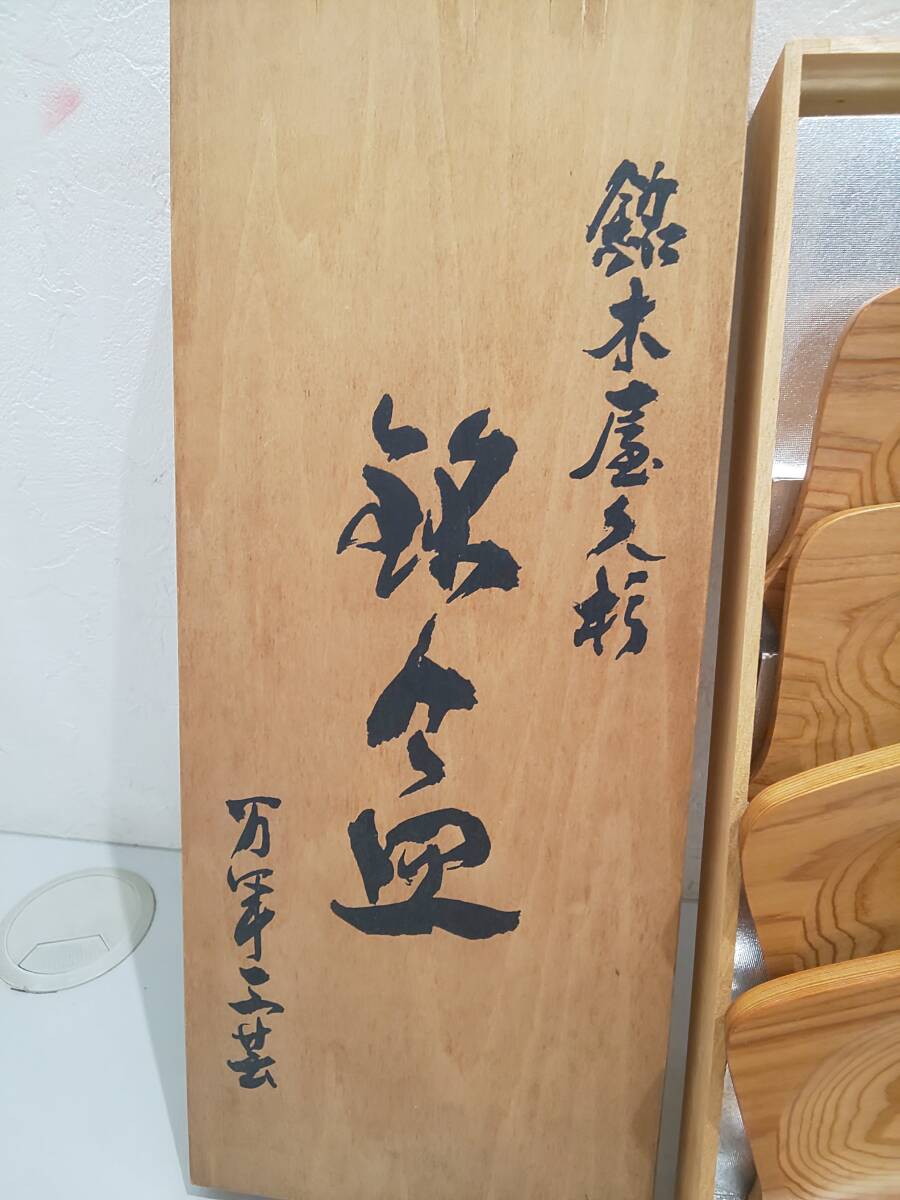 銘木屋久杉
銘々皿
万年工芸